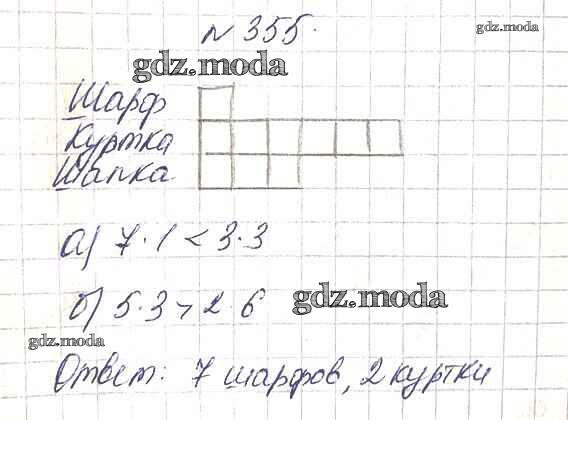 № 355.
gdz.moda
gdz.moda
Шарф
Куртка
Шапка
а) 7·1 < 3·3
б) 5·3 > 2 6
gdz.moda
gdz.moda
Ответ: 7 шарфов, 2 куртки